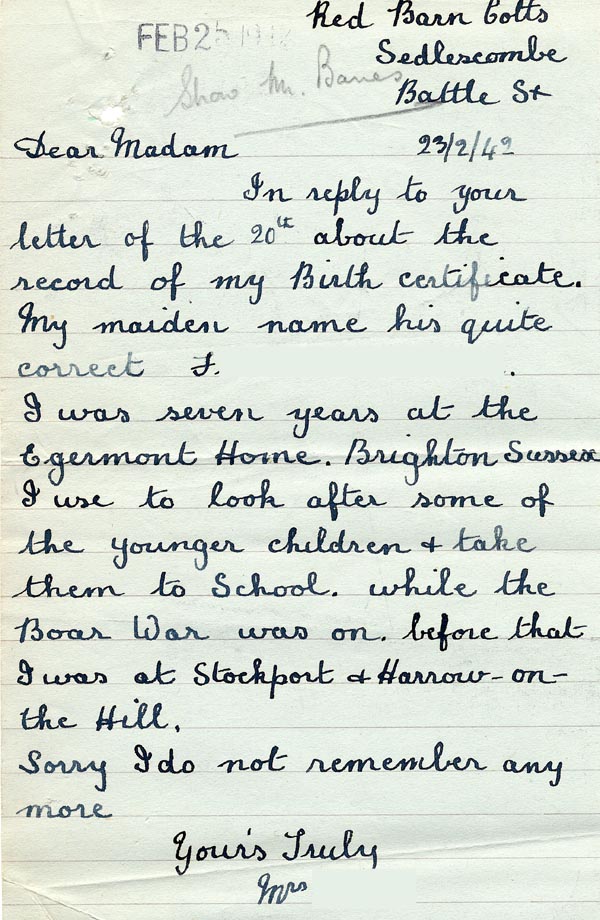 Red Barn Cotts
FEB 25 194
Sedlescombe
Show Mr. Banes
Battle Sx
Dear Madam 23/2/49
In reply to your
letter of the 20th about the
record of my Birth certificate.
My maiden name his quite
correct F.
I was seven years at the
Egermont Home. Brighton Sussex
I use to look after some of
the younger children + take
them to School. while the
Boar War was on. before that
I was at Stockport + Harrow-on-
the Hill.
Sorry I do not remember any
more
Your's Truly
Mrs